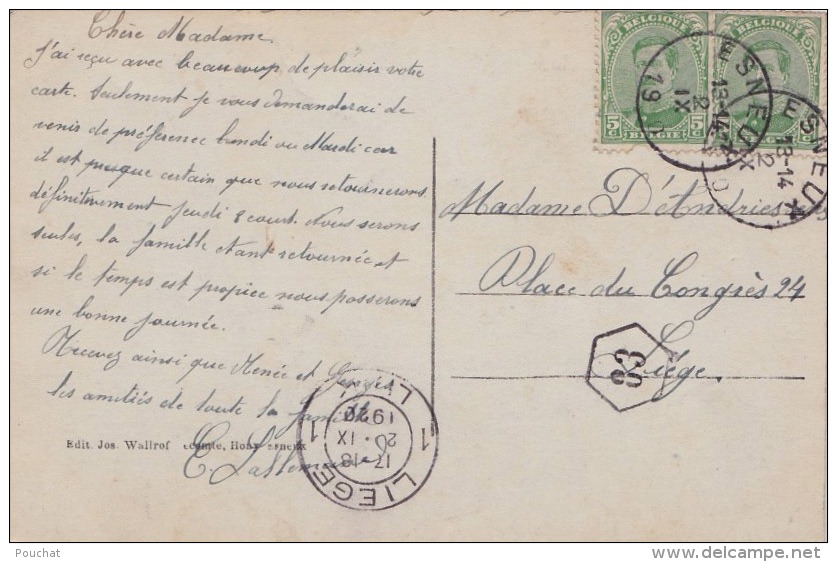 Chère Madame
J'ai reçu avec beaucoup de plaisir votre
carte. Seulement je vous demanderai de
venir de préférence lundi ou Mardi car
il est presque certain que nous retournerons
définitivement jeudi 8 court. Nous serons
seules, la famille étant retournée et
si le temps est propice nous passerons
une bonne journée.
Recevez ainsi que Renée et
les amitiés de toute la famille
Edit. Jos. Wallrof
BELGIQUE
5c 5c
BELGIE
BELGIQUE
5c
BELGIE
ESNEUX
13-14
IX
19
ESNEUX
13-14
Madame D'Andries
Place du Congrès 24
Liège.
83
LIEGE
1 1
17-18
IX
1920
Pouchat
www.delcampe.net